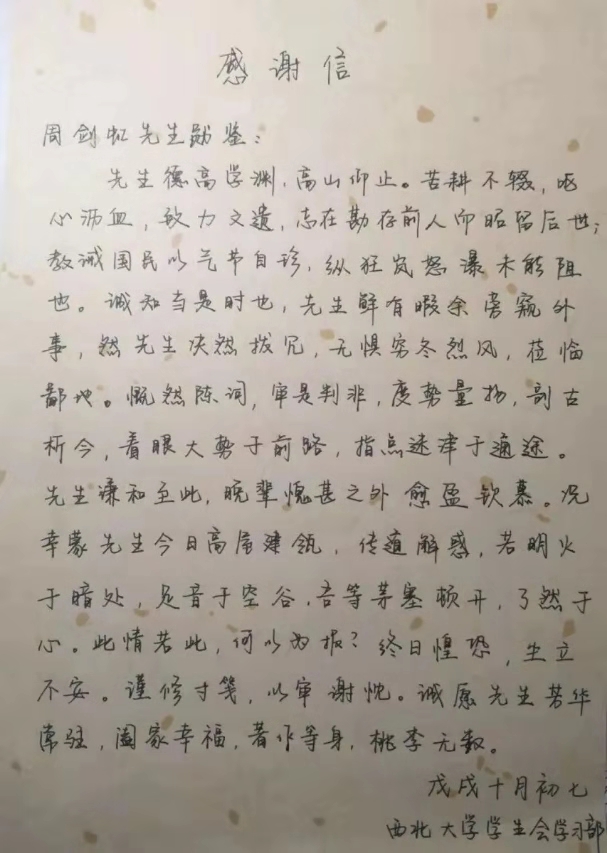 感谢信
周剑虹先生勋鉴：
先生德高学渊，高山仰止。苦耕不辍，呕
心沥血，致力文遗，志在勘存前人而昭留后世；
教诫国民以气节自珍，纵狂岚怒瀑未能阻
也。诚知当是时也，先生鲜有暇余旁窥外
事，然先生决然拨冗，无惧穷冬烈风，莅临
鄙地。慨然陈词，审是判非，度势量物，剖古
析今，着眼大势于前路，指点迷津于通途。
先生谦和至此，晚辈愧甚之外愈盈钦慕。况
幸蒙先生今日高屋建瓴，传道解惑，若明火
于暗处，足音于空谷，吾等茅塞顿开，了然于
心。此情若此，何以为报？终日惶恐，坐立
不安。谨修寸笺，以审谢忱。诚愿先生芳华
常驻，阖家幸福，著作等身，桃李无数。
戊戌十月初七
西北大学学生会学习部